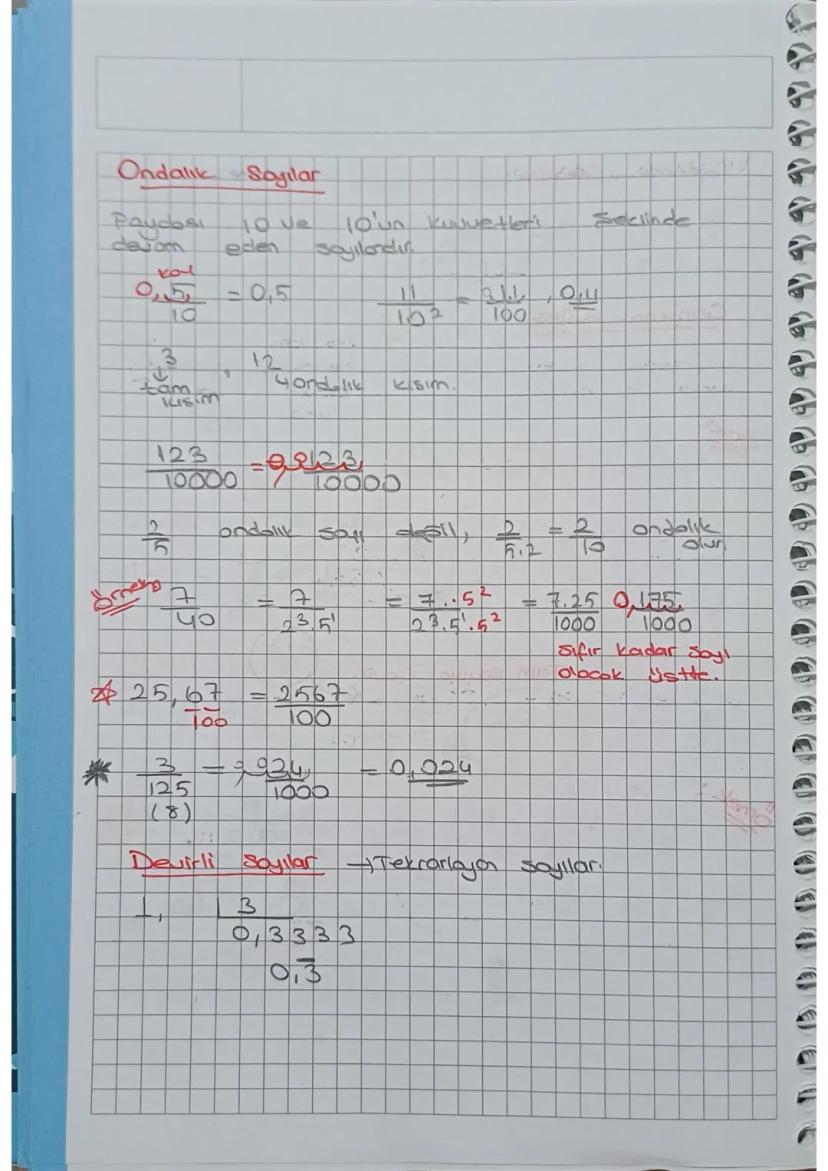 Ondalık Sayılar
Paydası 10 ve 10'un kuvvetleri şeklinde
devam eden sayılardır.
0,5/10 = 0,5    11/10² = 11/100, 0,11
3, 12
tam kısım    ondalık kısım.
123/10000 = 0,0123/10000
2/5 ondalık sayı değil, 2/5.2 = 2/10 ondalık olur
Örnek 7/40 = 7/2³.5¹ = 7..5²/2³.5¹.5² = 7.25/1000 0,175/1000
sıfır kadar sayı
olacak üstte.
25,67/100 = 2567/100
3/125 = 024/1000 = 0,024
(8)
Devirli Sayılar → Tekrarlayan sayılar.
1, 3
0,3333
0,3̅